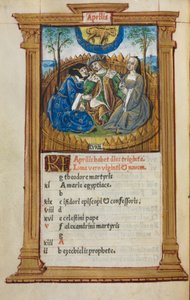 Aprilis
Aprilis habet dies triginta.
Luna vero viginti & novem.
g theodore martyris
xi A marie egyptiace
b
xix c isidori episcopi & confessoris
viii d
e celestini pape
v f alexandrini martyris
g
xiii A
ii b ezechielis prophete